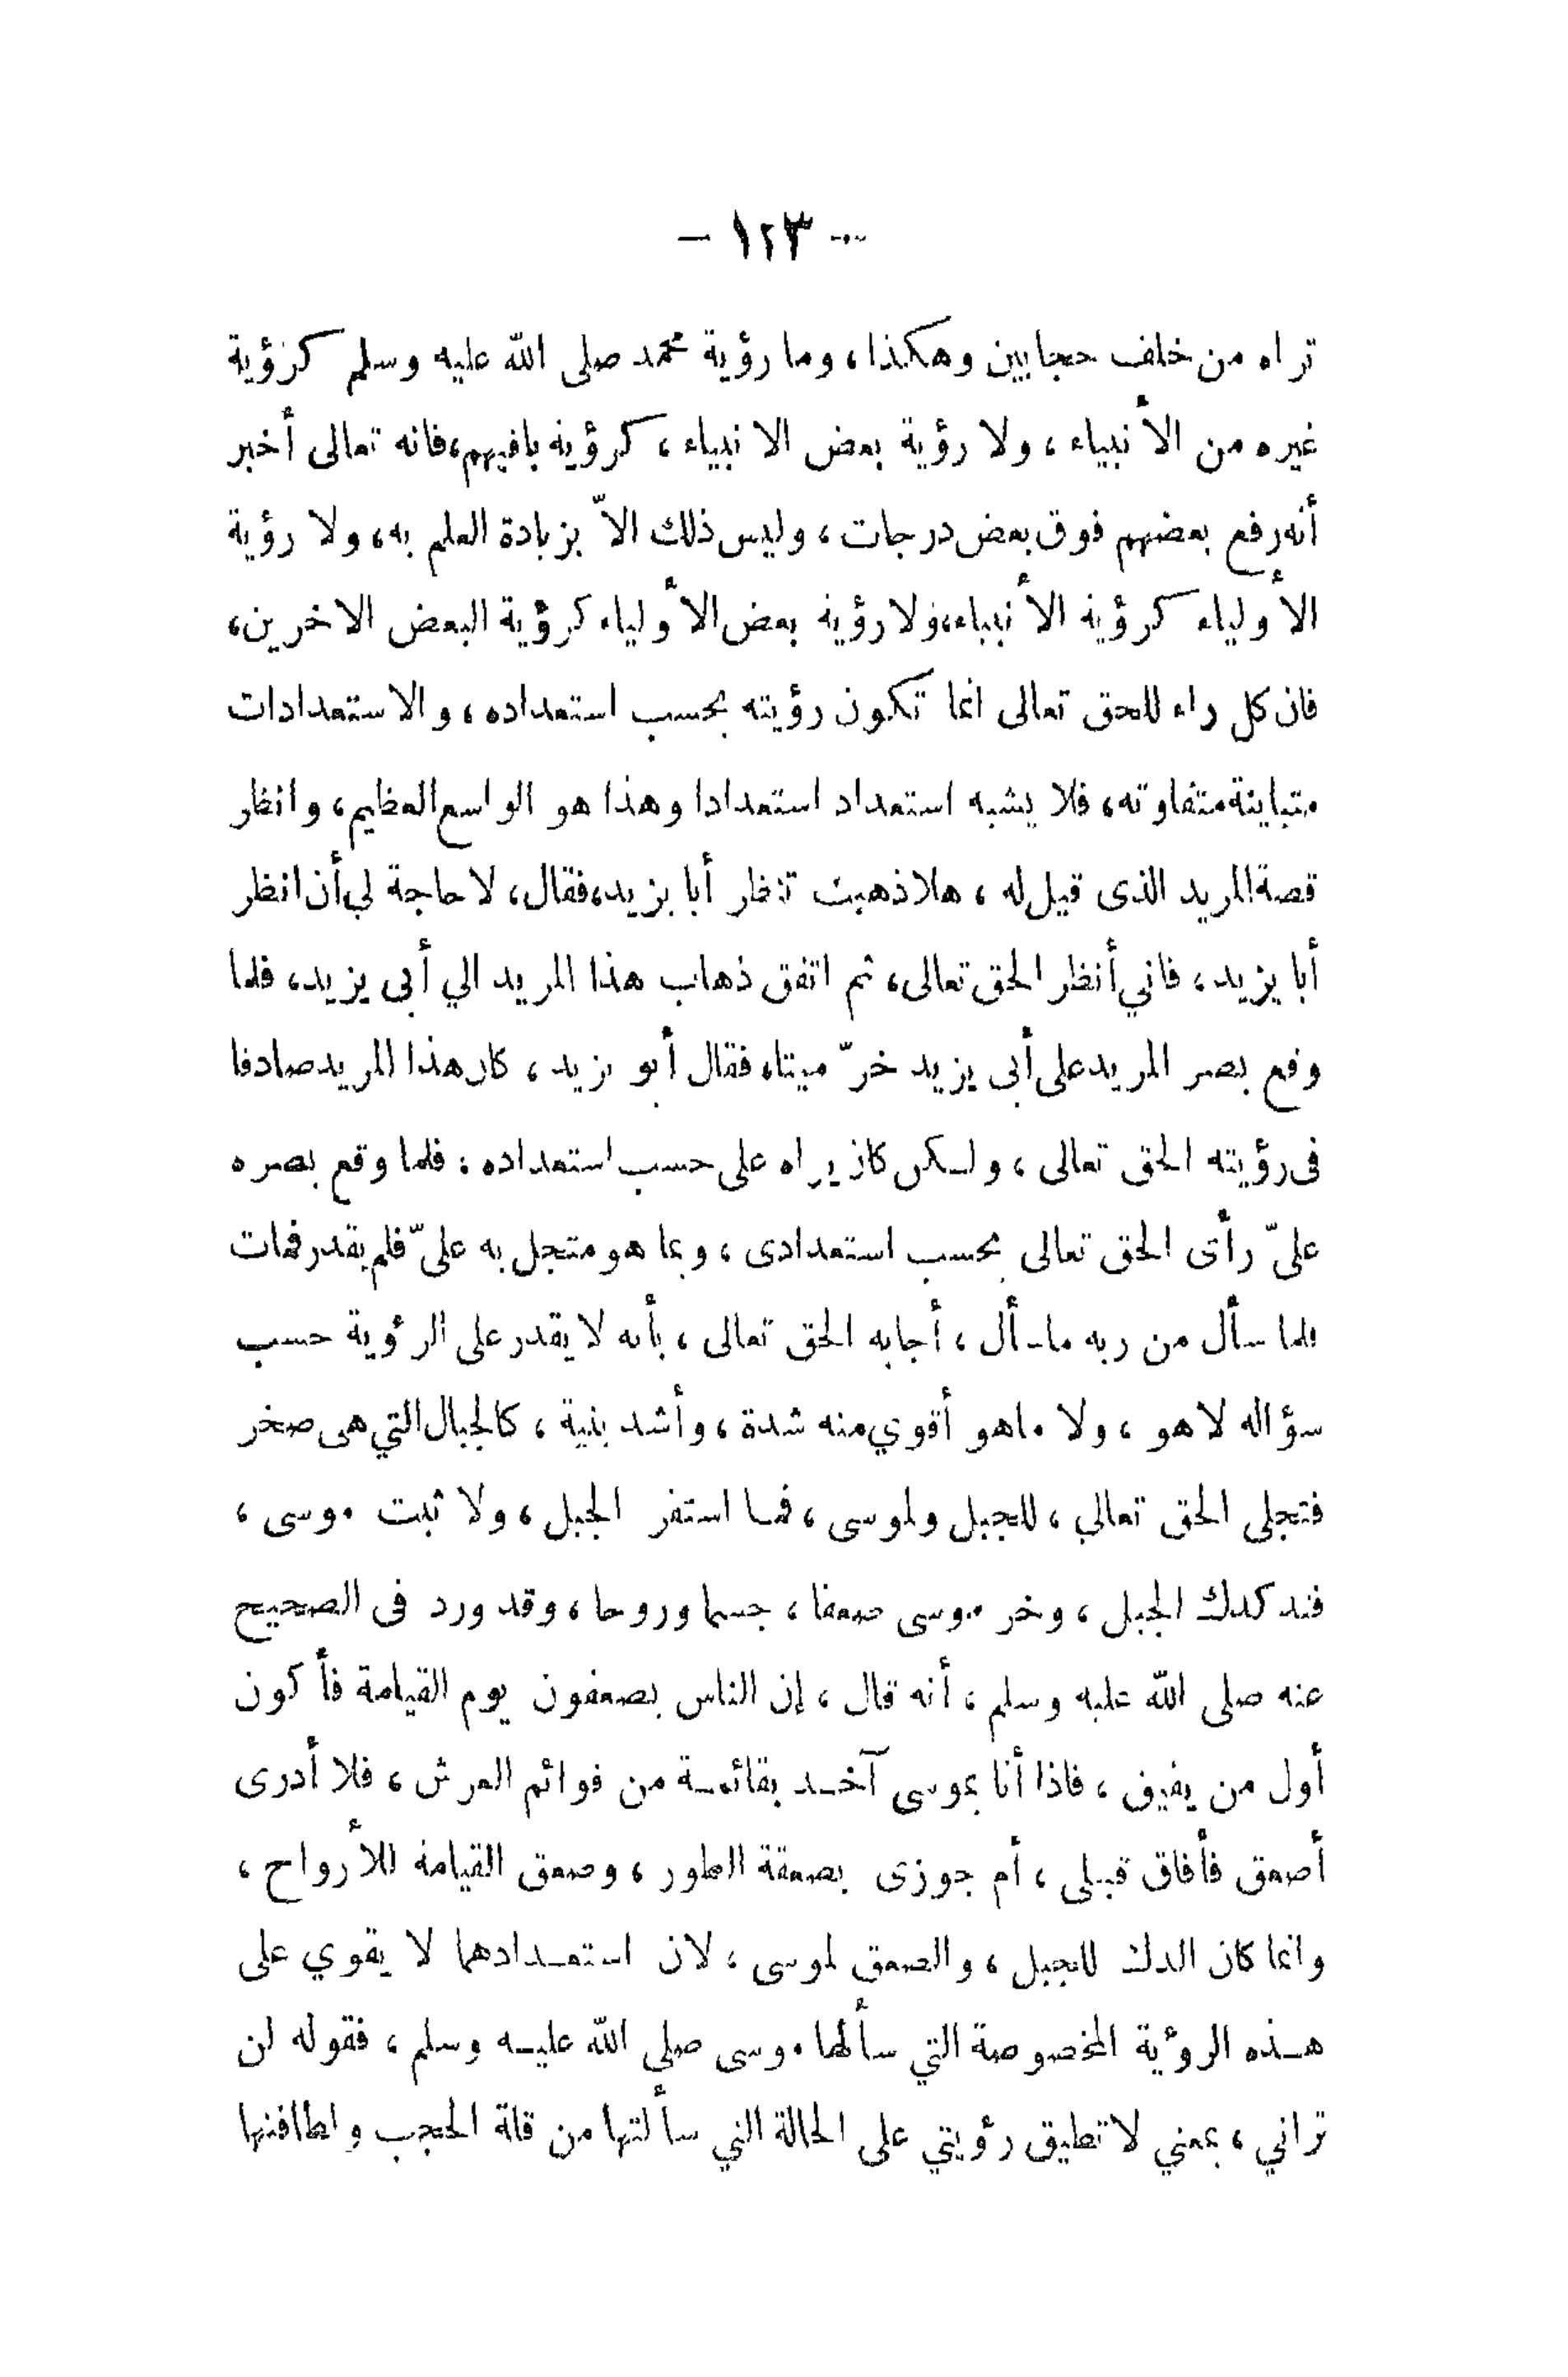 - ١٢٣ -
تراه من خلف حجابين وهكذا، وما رؤية محمد صلى الله عليه وسلم كرؤية
غيره من الأنبياء، ولا رؤية بعض الانبياء، كرؤية باقيهم، فانه تعالى أخبر
أنه رفع بعضهم فوق بعض درجات، وليس ذلك الاّ بزيادة العلم به، ولا رؤية
الأولياء كرؤية الأنبياء، ولا رؤية بعض الأولياء كرؤية البعض الاخرين،
فان كل راء للحق تعالى انما تكون رؤيته بحسب استعداده، والاستعدادات
متباينة متفاوته، فلا يشبه استعداد استعدادا وهذا هو الواسع العظيم، وانظر
قصة المريد الذى قيل له، هلا ذهبت تنظر أبا يزيد، فقال، لا حاجة لي أن انظر
أبا يزيد، فاني أنظر الحق تعالى، ثم اتفق ذهاب هذا المريد الي أبى يزيد، فلما
وقع بصر المريد على أبى يزيد خرّ ميتا، فقال أبو يزيد، كان هذا المريد صادقا
فى رؤيته الحق تعالى، ولكن كان يراه على حسب استعداده، فلما وقع بصره
علىّ رأى الحق تعالى بحسب استعدادى، وبما هو متجل به علىّ فلم يقدر فمات
فلما سأل من ربه ما سأل، أجابه الحق تعالى، بأنه لا يقدر على الرؤية حسب
سؤاله لا هو، ولا ما هو أقوي منه شدة، وأشد بنية، كالجبال التي هى صخر
فتجلى الحق تعالي، للجبل ولموسى، فما استقر الجبل، ولا ثبت موسى،
فتدكدك الجبل، وخر موسى صعقا، جسما وروحا، وقد ورد فى الصحيح
عنه صلى الله عليه وسلم، أنه قال، إن الناس يصعقون يوم القيامة فأكون
أول من يفيق، فاذا أنا بموسى آخذ بقائمة من قوائم العرش، فلا أدرى
أصعق فأفاق قبلى، أم جوزى بصعقة الطور، وصعق القيامة للأرواح،
وانما كان الدك للجبل، والصعق لموسى، لان استعدادهما لا يقوي على
هذه الرؤية المخصوصة التي سألها موسى صلى الله عليه وسلم، فقوله لن
تراني، بمعني لا تطيق رؤيتي على الحالة التي سألتها من قلة الحجب ولطافتها